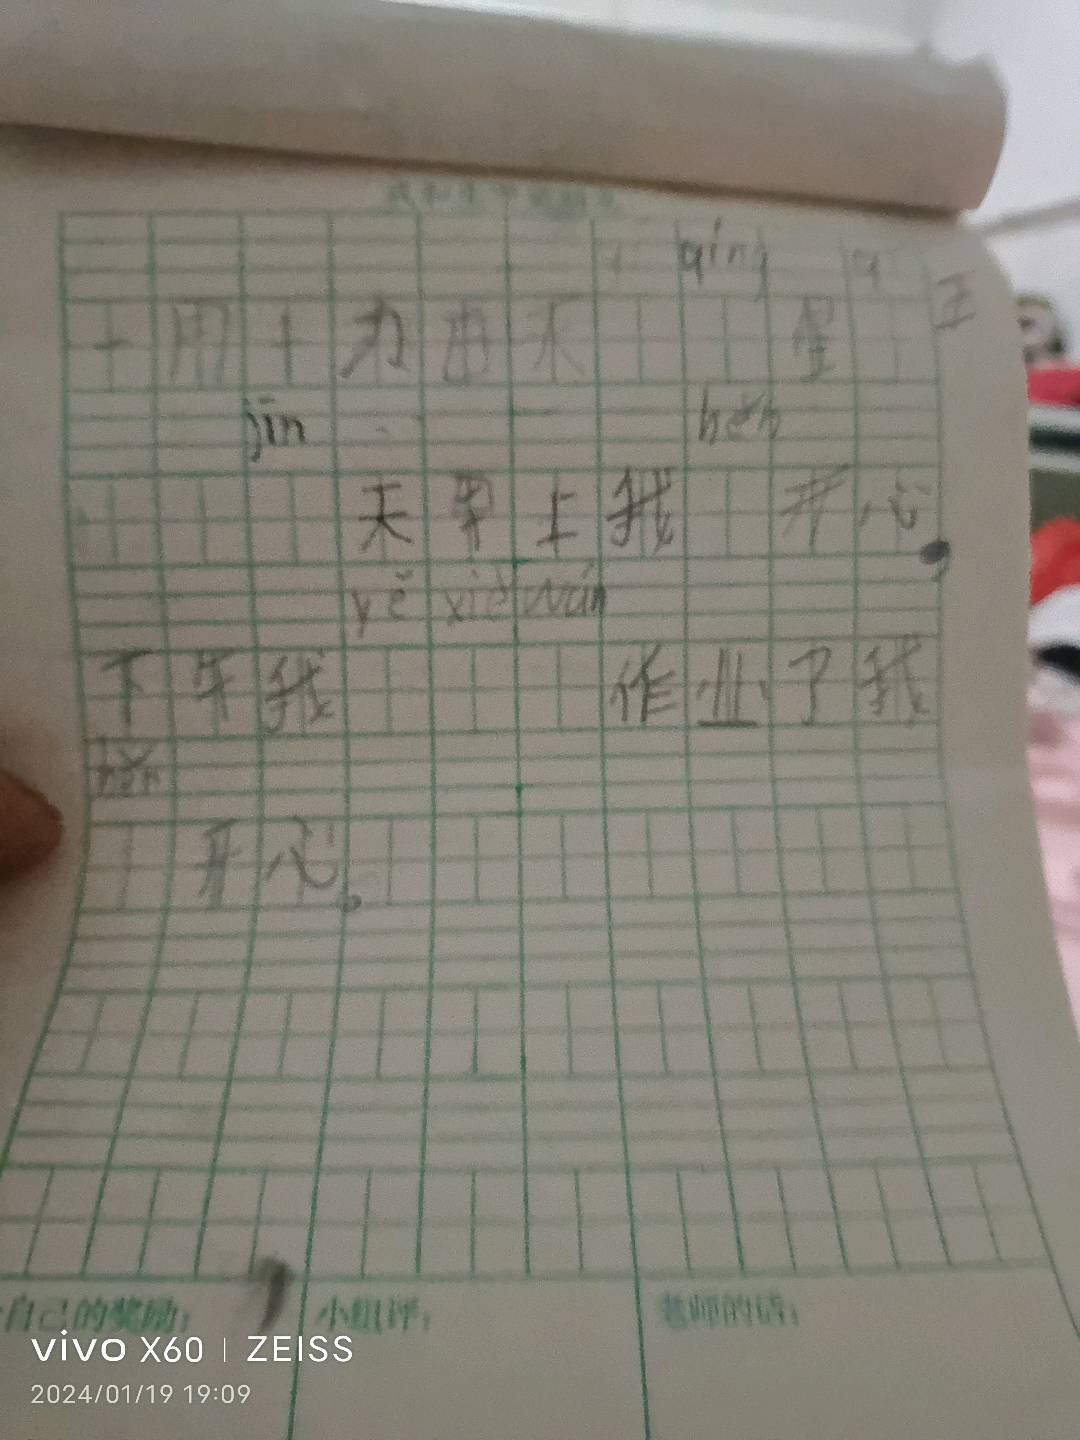 qíng
王
一月十九日天 星
jīn hěn
天早上我 开心，
yě xiě wán
下午我 作业了我
hěn
开心。
自己的奖励： 小组评： 老师的话：
vivo X60 | ZEISS
2024/01/19 19:09